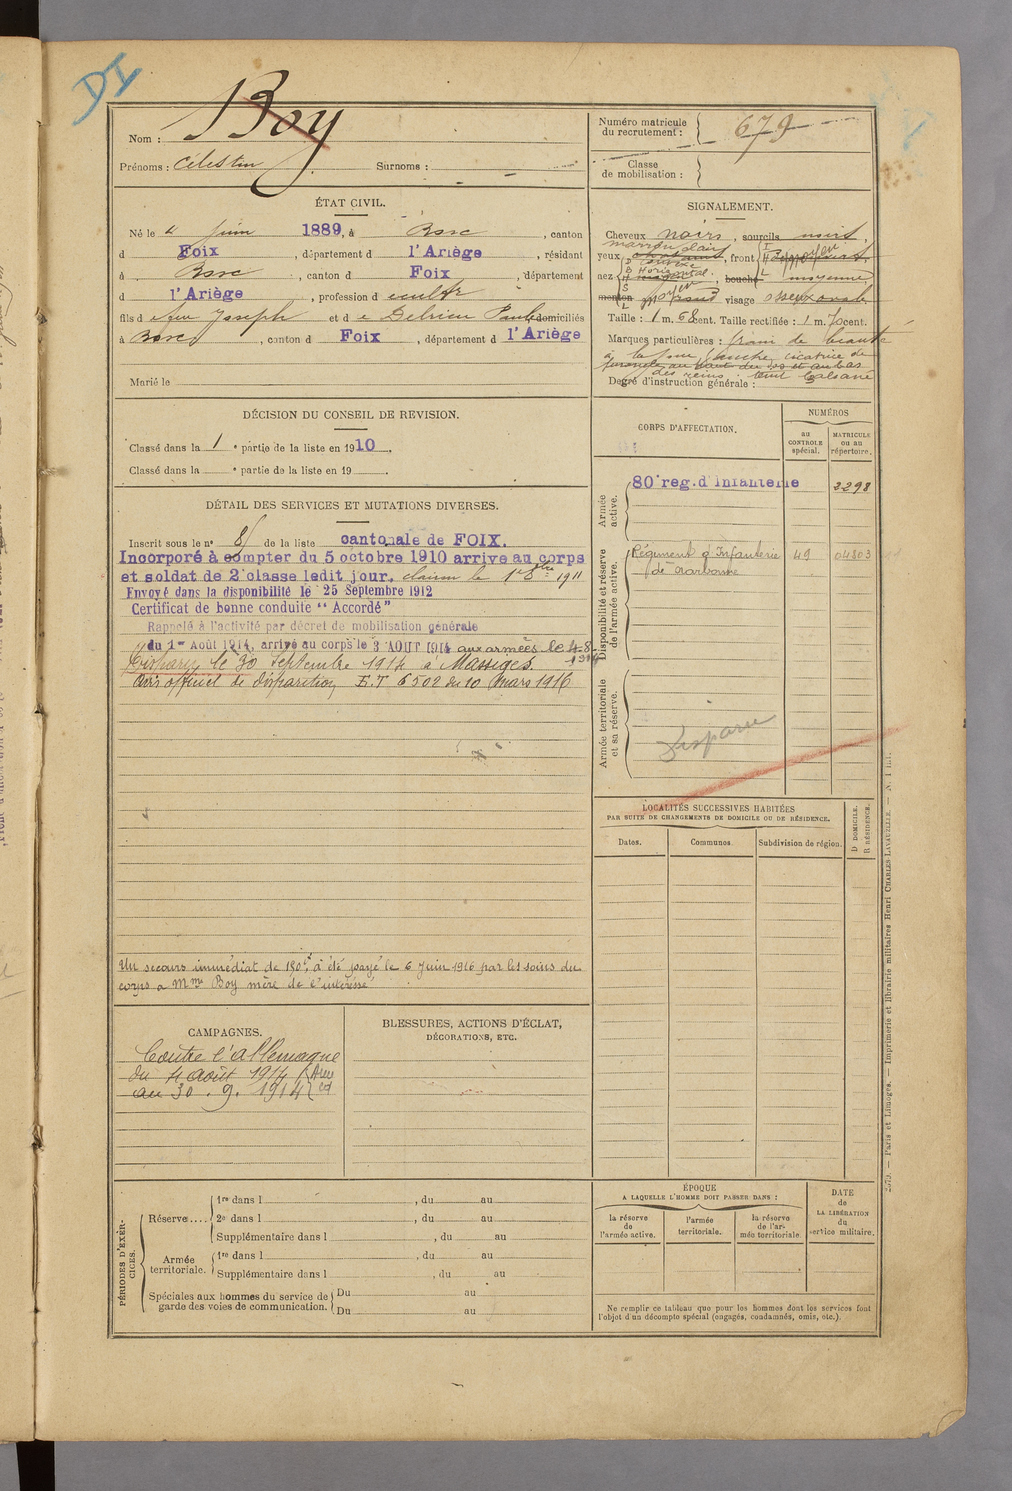 DI
Nom : Boy
Prénoms : Célestin Surnoms :
Numéro matricule du recrutement : 679
Classe de mobilisation :
ÉTAT CIVIL.
Né le 4 Juin 1889, à Bosc, canton
d Foix, département d l'Ariège, résidant
à Bosc, canton d Foix, département
d l'Ariège, profession d cultr
fils d e feu Joseph et d e Delrieu Paule domiciliés
à Bosc, canton d Foix, département d l'Ariège
Marié le
DÉCISION DU CONSEIL DE REVISION.
Classé dans la 1e partie de la liste en 1910.
Classé dans la e partie de la liste en 19 .
DÉTAIL DES SERVICES ET MUTATIONS DIVERSES.
Inscrit sous le no 8 de la liste cantonale de FOIX.
Incorporé à compter du 5 octobre 1910 arrivé au corps
et soldat de 2e classe ledit jour, clairon le 1er 8bre 1911
Envoyé dans la disponibilité le 25 Septembre 1912
Certificat de bonne conduite “ Accordé ”
Rappelé à l'activité par décret de mobilisation générale
du 1er Août 1914, arrivé au corps le 3 AOUT 1914 aux armées le 4-8-1914
Disparu le 30 Septembre 1914 à Massiges.
Avis officiel de disparition E.T 6502 du 10 Mars 1916
Un secours immédiat de 150f a été payé le 6 Juin 1916 par les soins du
corps a Mme Boy mère de l'intéressé
CAMPAGNES.
Contre l'allemagne
du 4 août 1914
au 30 . 9. 1914
BLESSURES, ACTIONS D'ÉCLAT,
DÉCORATIONS, ETC.
PÉRIODES D'EXERCICES.
Réserve....
1re dans l , du au
2e dans l , du au
Supplémentaire dans l , du au
Armée territoriale.
1re dans l , du au
Supplémentaire dans l , du au
Spéciales aux hommes du service de garde des voies de communication.
Du au
Du au
SIGNALEMENT.
Cheveux noirs, sourcils noirs,
marron clair
yeux , front moyen
nez , bouche moyenne,
Horizontal
menton visage osseux ovale
moyen
Taille : 1 m. 68 cent. Taille rectifiée : 1 m. 70 cent.
Marques particulières : grain de beauté
à la joue gauche, cicatrice de
furoncle au haut du dos et au bas
des reins
Degré d'instruction générale :
CORPS D'AFFECTATION.
NUMÉROS
au CONTROLE spécial.
MATRICULE ou au répertoire.
Armée active.
80e rég. d'Infanterie 2298
Disponibilité et réserve de l'armée active.
Régiment d'Infanterie 49 04803
de Narbonne
Armée territoriale et sa réserve.
Disparu
LOCALITÉS SUCCESSIVES HABITÉES
PAR SUITE DE CHANGEMENTS DE DOMICILE OU DE RÉSIDENCE.
Dates.
Communes.
Subdivision de région.
D DOMICILE.
R RÉSIDENCE.
ÉPOQUE
A LAQUELLE L'HOMME DOIT PASSER DANS :
la réserve de l'armée active.
l'armée territoriale.
la réserve de l'armée territoriale.
DATE de LA LIBÉRATION du service militaire.
Ne remplir ce tableau que pour les hommes dont les services font
l'objet d'un décompte spécial (engagés, condamnés, omis, etc.).
Paris et Limoges. — Imprimerie et librairie militaires Henri CHARLES-LAVAUZELLE.